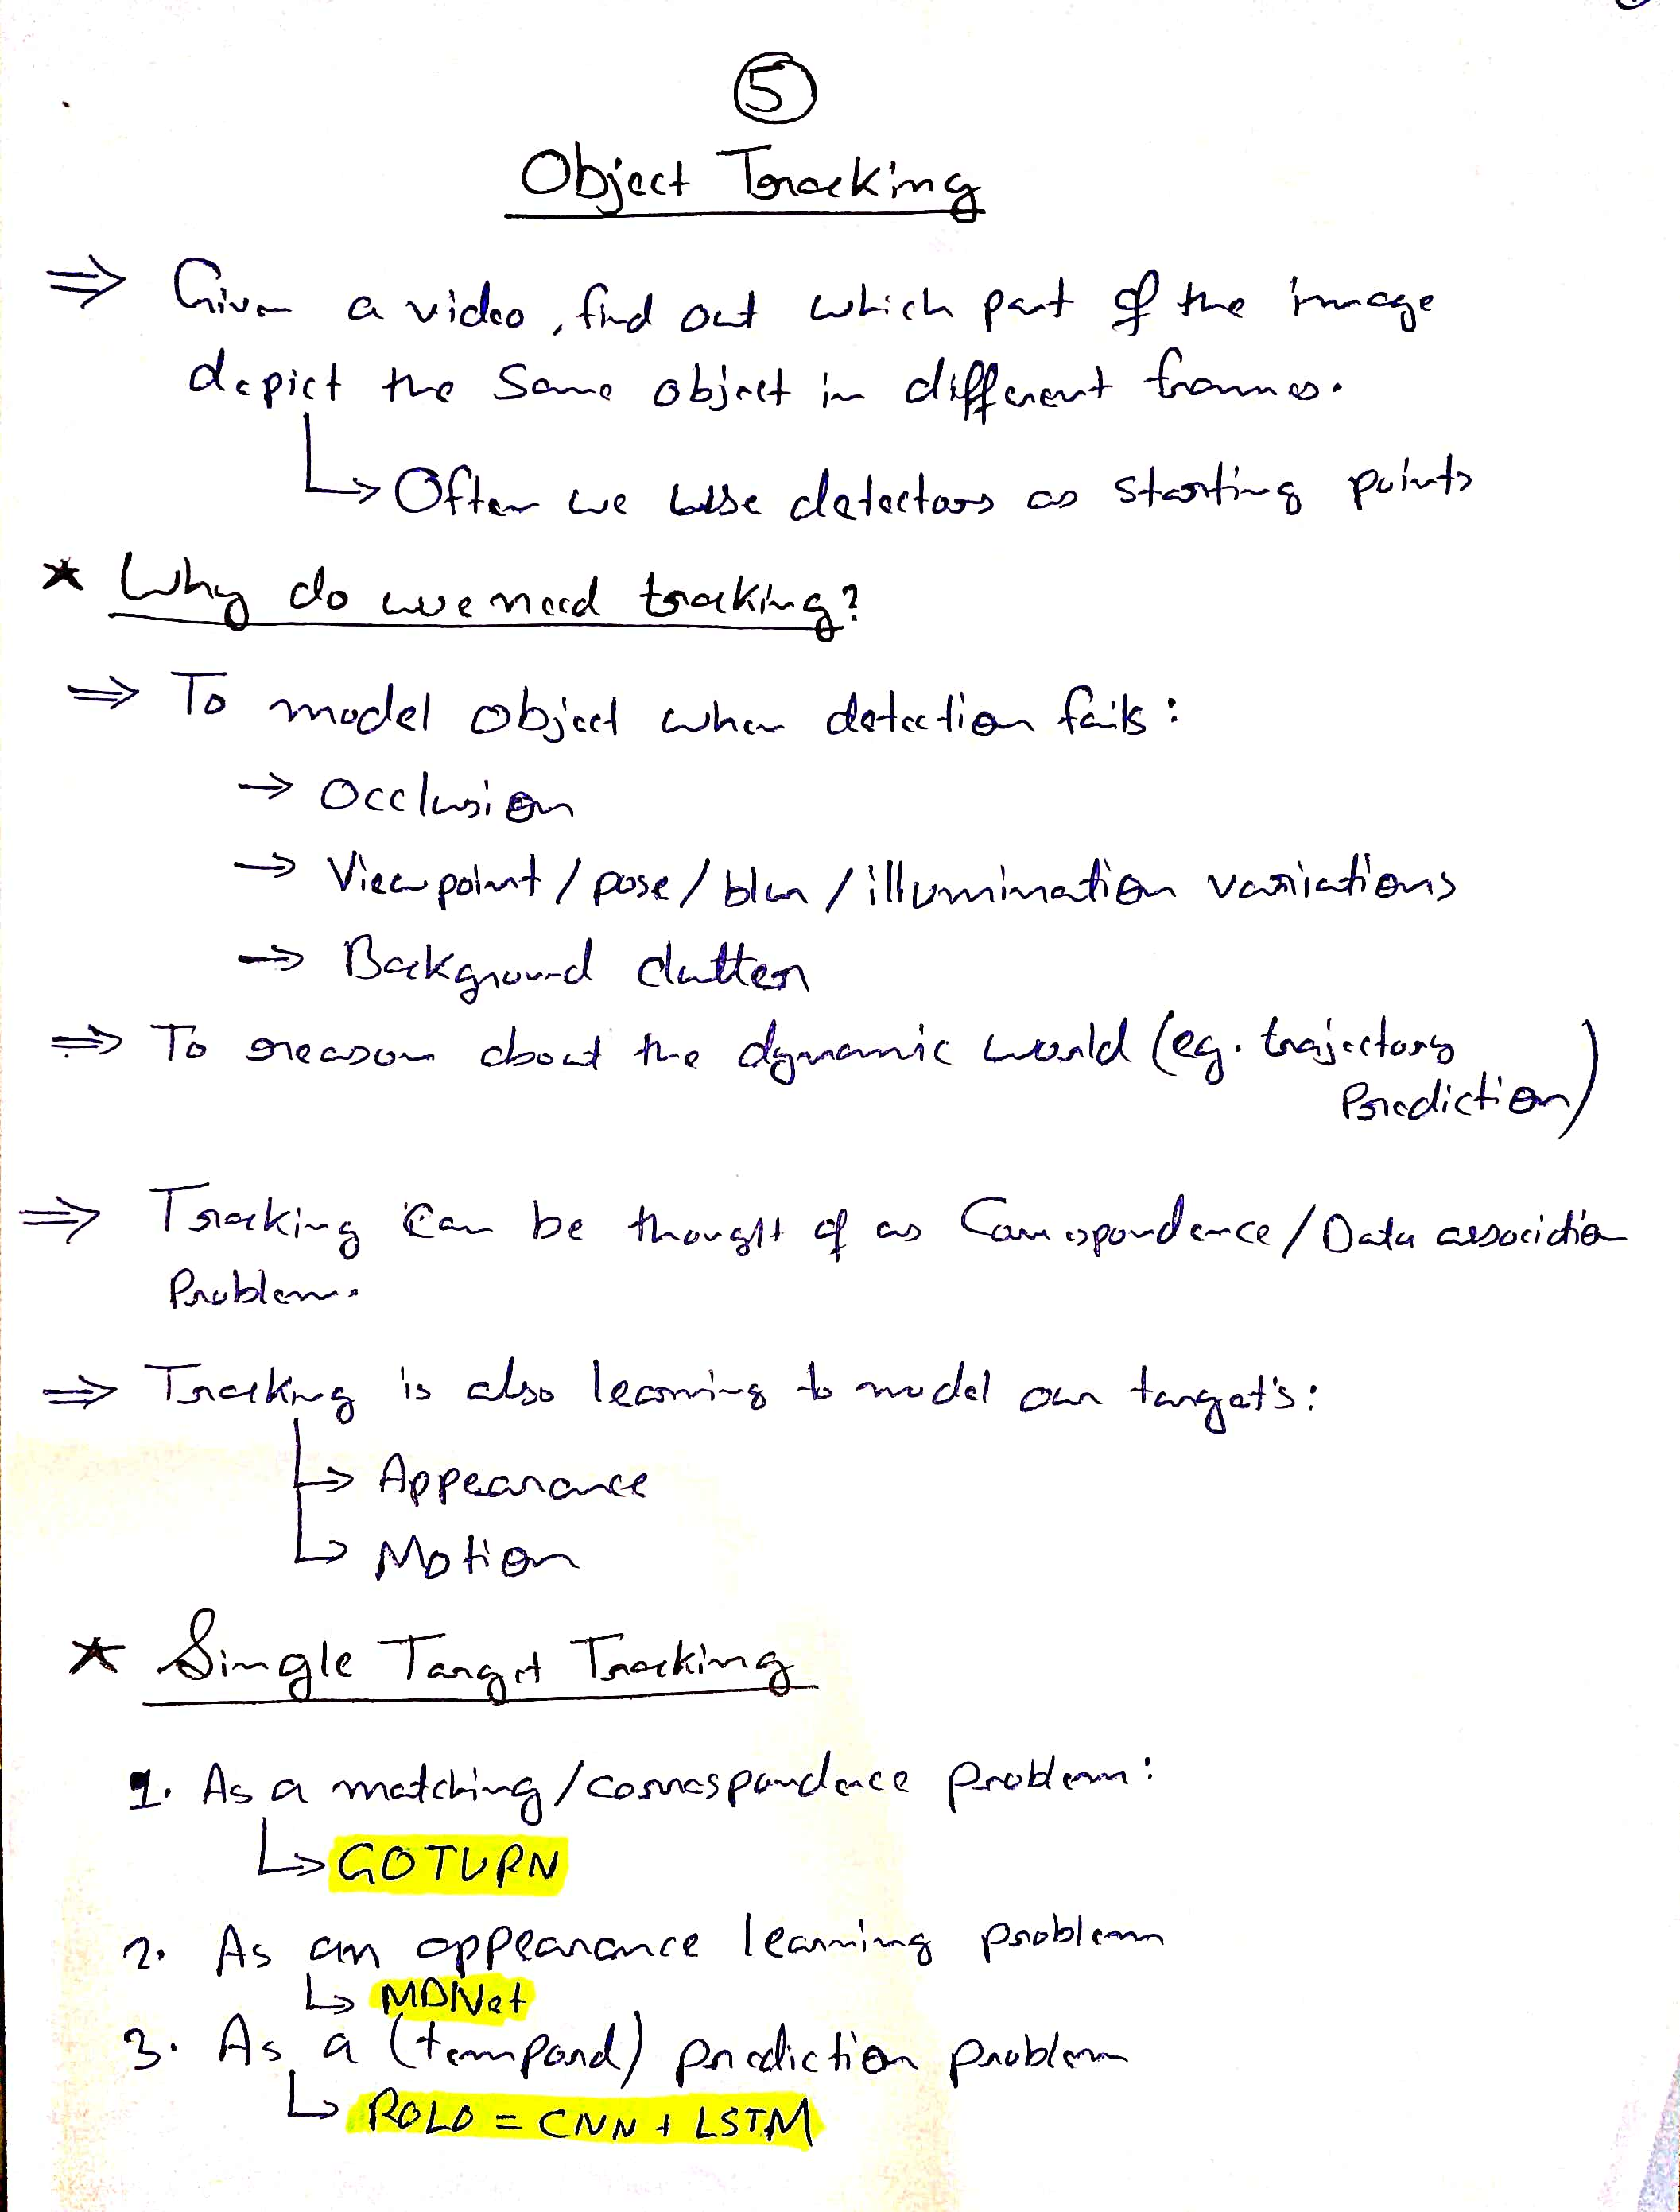 5
Object Tracking
⇒ Given a video, find out which part of the image
depict the same object in different frames.
↳ Often we use detectors as starting points
* Why do we need tracking?
⇒ To model object when detection fails:
→ Occlusion
→ Viewpoint / pose / blur / illumination variations
→ Background clutter
⇒ To reason about the dynamic world (eg. trajectory
Prediction)
⇒ Tracking can be thought of as Correspondence / Data association
Problem.
⇒ Tracking is also learning to model our target's:
↳ Appearance
↳ Motion
* Single Target Tracking
1. As a matching / correspondence problem:
↳ GOTURN
2. As an appearance learning problem
↳ MDNet
3. As a (temporal) prediction problem
↳ ROLO = CNN + LSTM